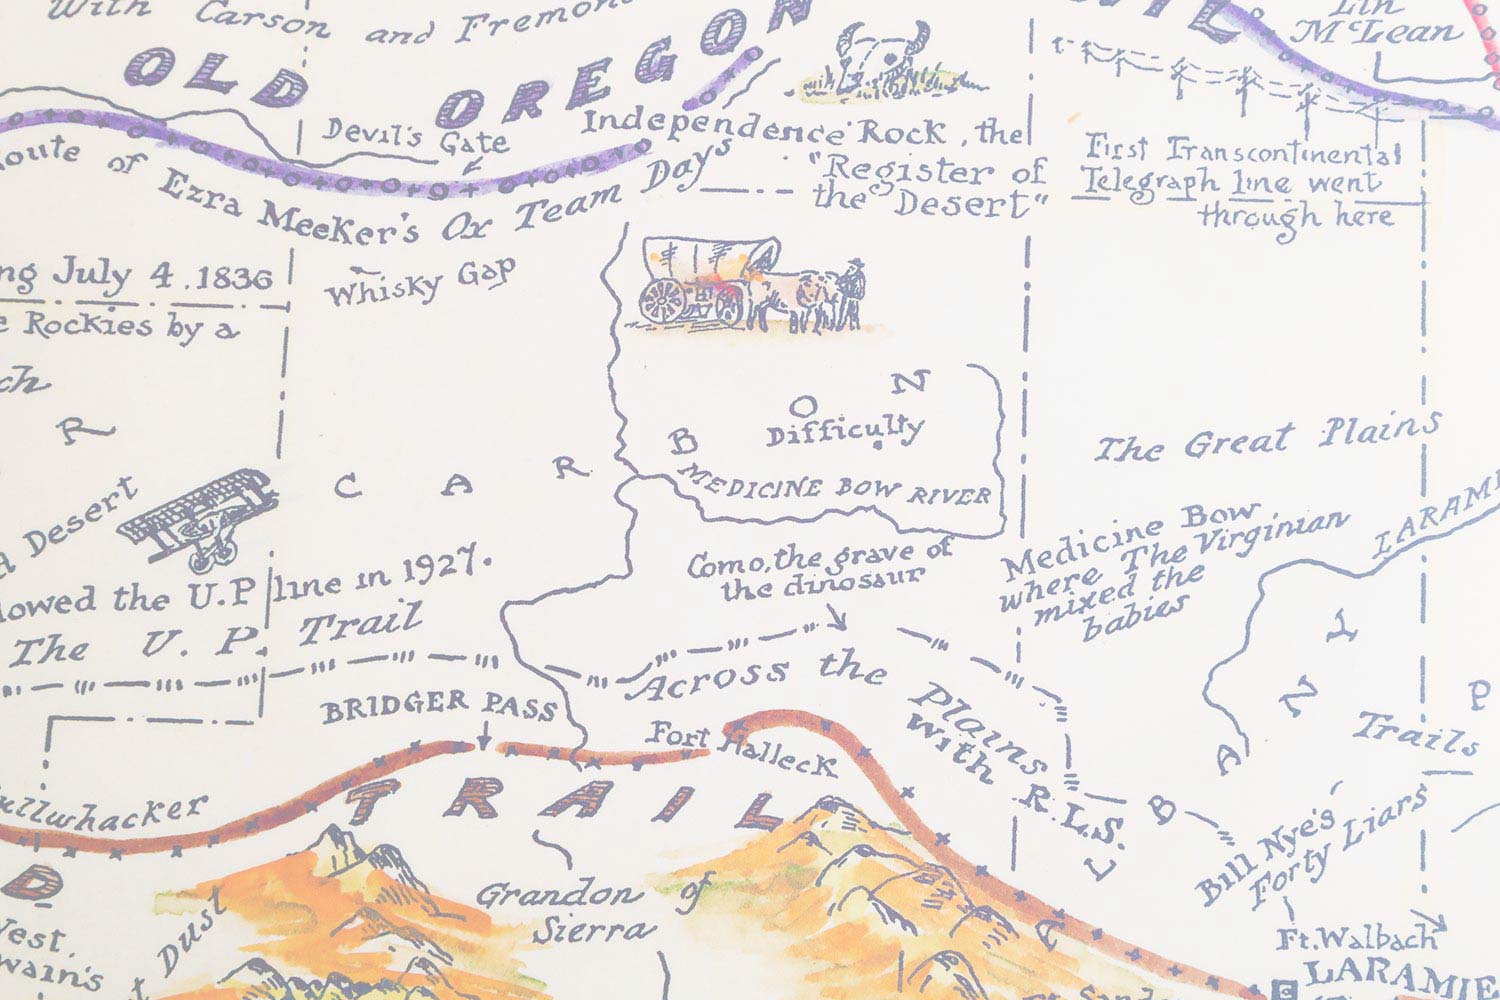 With Carson and Fremont
OLD OREGON
Lin
McLean
Devil's Gate
Independence Rock, the
"Register of
the Desert"
First Transcontinental
Telegraph line went
through here
Route of Ezra Meeker's Ox Team Days
ng July 4.1836
e Rockies by a
ch
Whisky Gap
R
C A R B O N
Difficulty
MEDICINE BOW RIVER
The Great Plains
Desert
LARAMI
Como, the grave of
the dinosaur
Medicine Bow,
where The Virginian
mixed the
babies
lowed the U.P line in 1927.
The U.P. Trail
Across the Plains
with R.L.S.
BRIDGER PASS
Fort Halleck
ullwhacker
TRAIL
A L B A N Y
P
Trails
Bill Nye's
Forty Liars
D
Grandon of
Sierra
Ft. Walbach
LARAMIE
West.
wain's
Dust